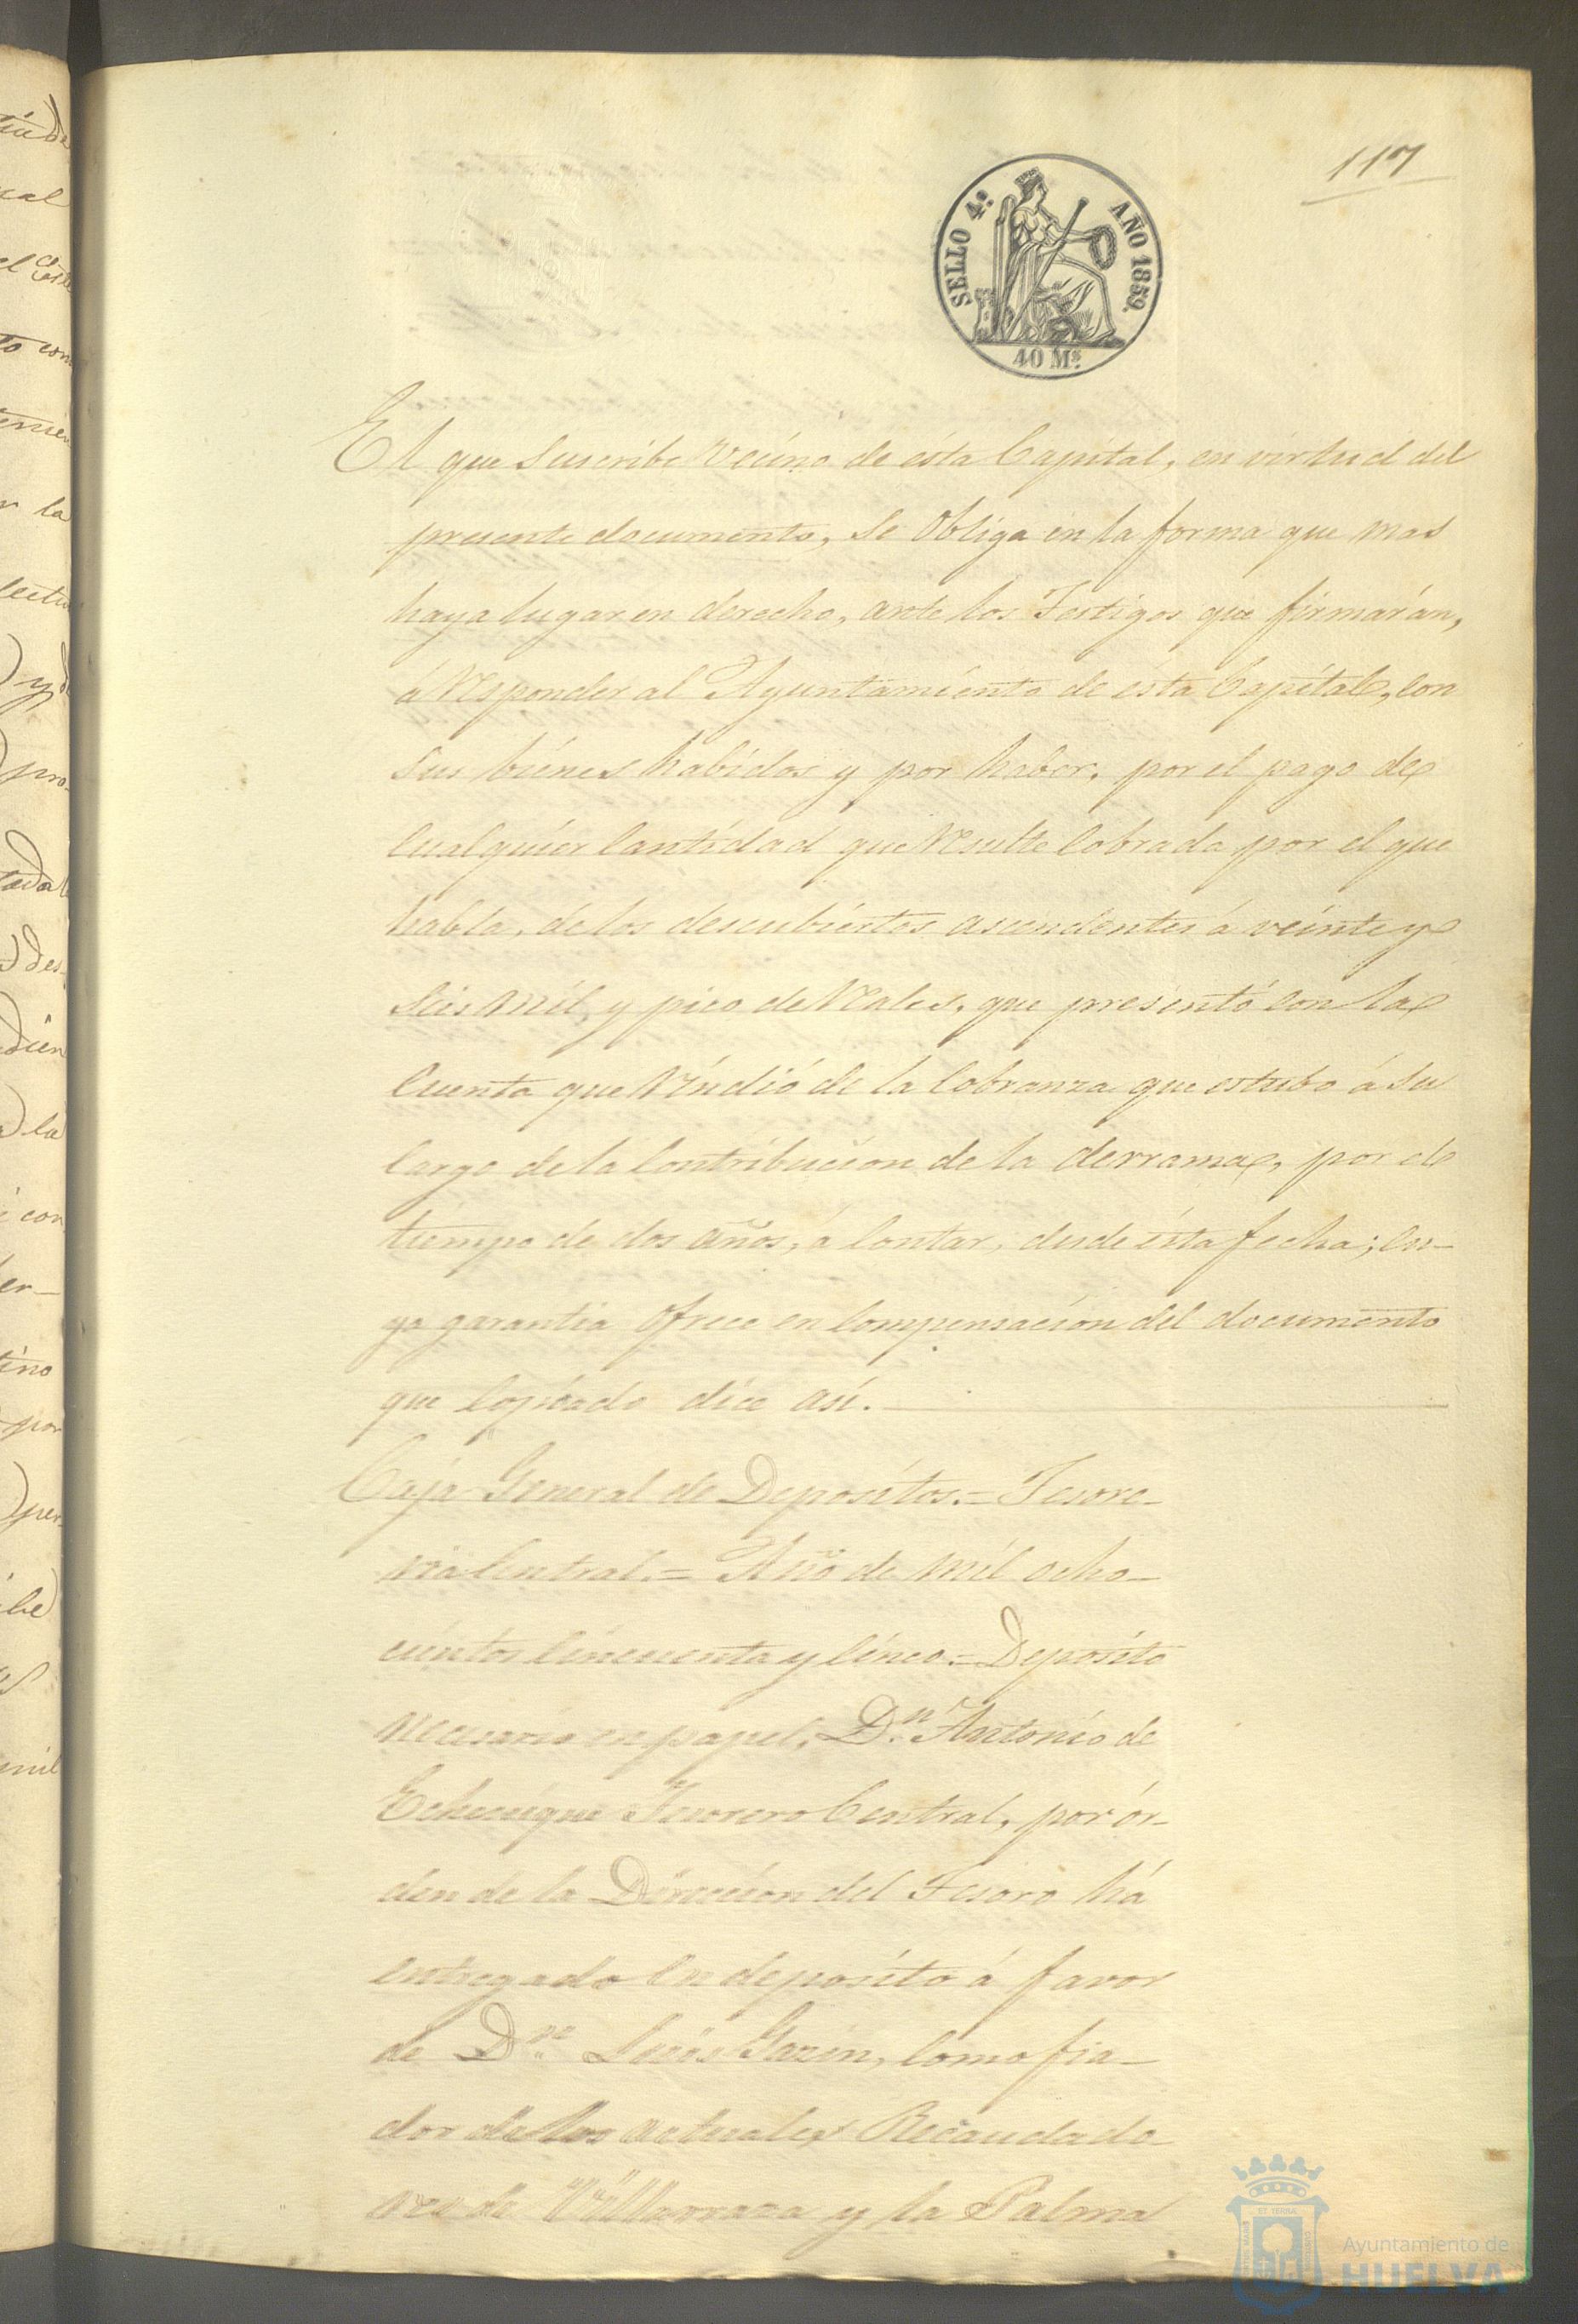 117
SELLO 4.º AÑO 1859.
40 Ms.
El que suscribe vecino de ésta Capital, en virtud del
presente documento, se obliga en la forma que mas
haya lugar en derecho, ante los Testigos que firmarán,
á responder al Ayuntamiento de ésta Capital, con
sus biénes habidos y por haber, por el pago de
cualquier cantidad que resulte cobrada por el que
habla, de los descubiertos ascendentes á veinte y
seis mil, y pico de reales, que presentó con la
cuenta que rindió de la cobranza que estubo á su
cargo de la Contribucion de la derrama, por el
tiempo de dos años, á contar, desde ésta fecha; cu-
ya garantia ofrece en compensacion del documento
que copiado dice asi.
Caja General de Depositos.= Tesore-
ria Central.= Año de mil ocho-
cientos cincuenta y cinco.= Deposito
necesario en papel. D.n Antonio de
Echenique Tesorero Central, por ór-
den de la Direccion del Tesoro há
entregado en deposito á favor
de D.n Luis Gazin, como fia-
dor de los actuales Recaudado-
res de Villarraza y la Palma
Ayuntamiento de
HUELVA